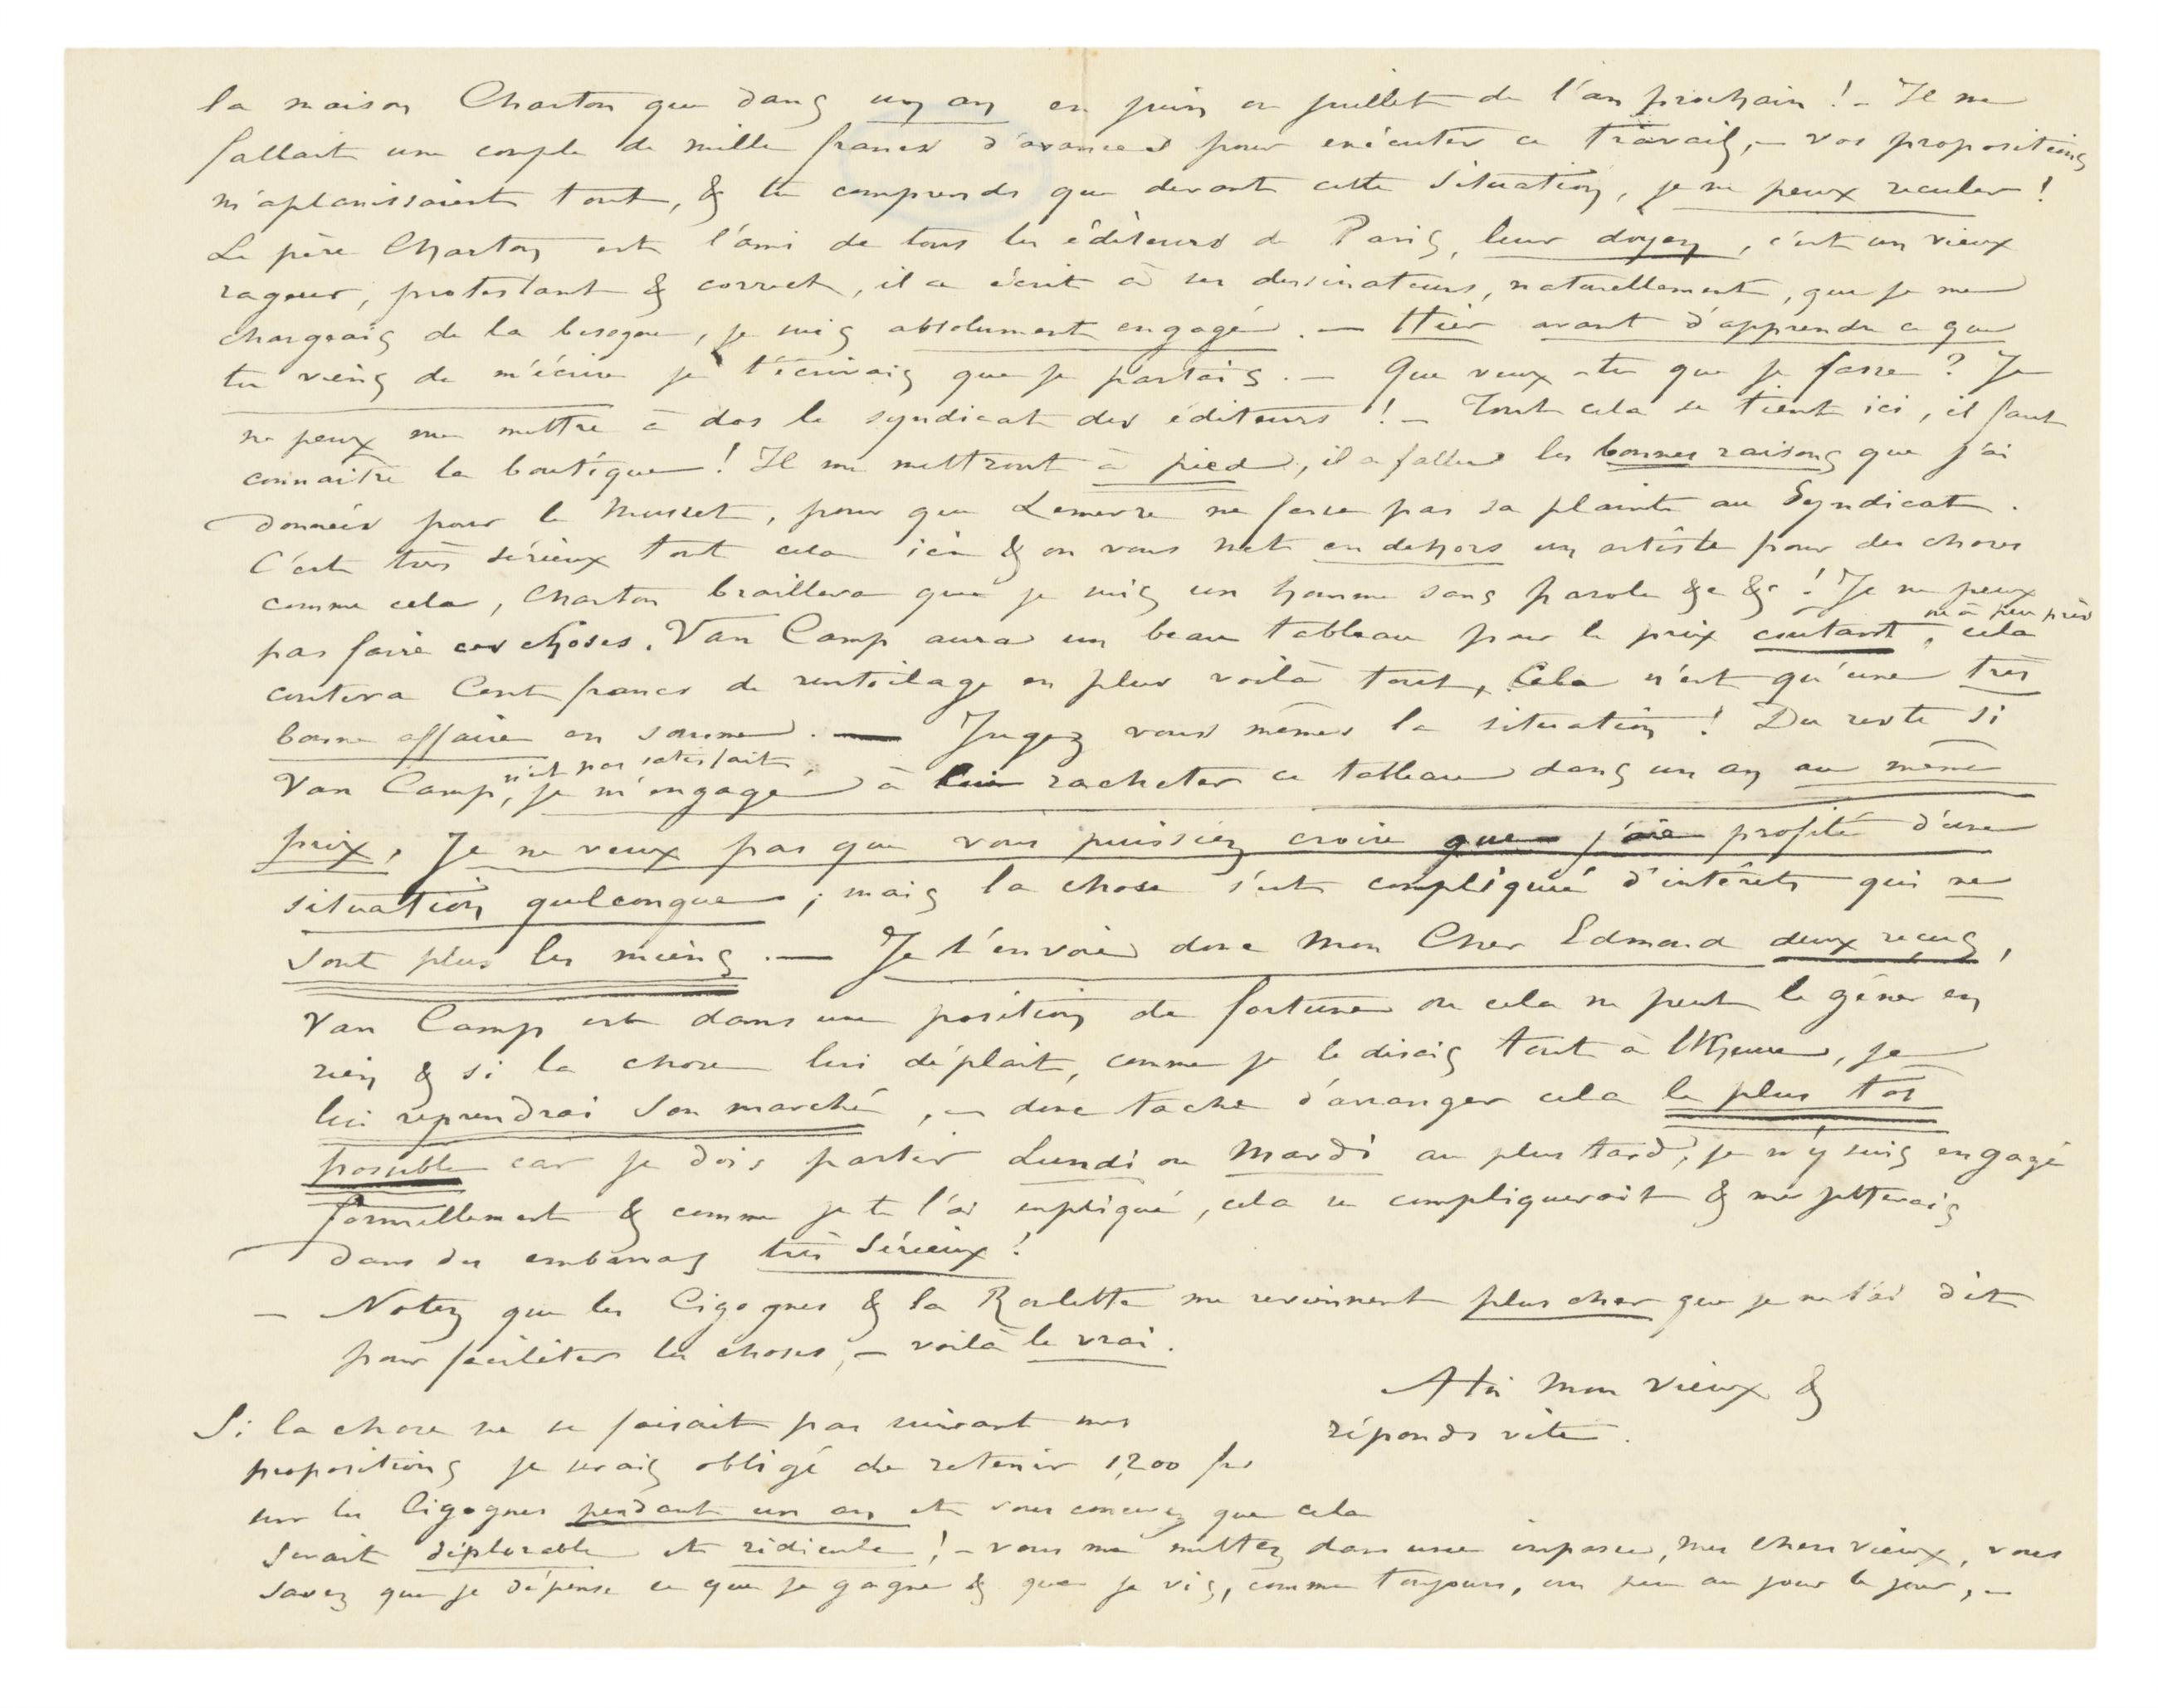 la maison Charton que dans un an en juin ou juillet de l'an prochain ! – Il me
fallait une couple de mille francs d'avances pour exécuter ce travail, – vos propositions
m'aplanissaient tout, & tu comprends que devant cette situation, je ne peux reculer !
Le père Charton est l'ami de tous les éditeurs de Paris, leur doyen, c'est un vieux
rageur, protestant & correct, il a écrit à ses dessinateurs, naturellement, que je me
chargeais de la besogne, je suis absolument engagé. – Hier avant d'apprendre ce que
tu viens de m'écrire je t'écrivais que je partais. – Que veux-tu que je fasse ? Je
ne peux me mettre à dos le syndicat des éditeurs ! – Tout cela se tient ici, il faut
connaitre la boutique ! Il me mettront à pied, il a fallu les bonnes raisons que j'ai
données pour le Musset, pour que Lemerre ne fasse pas sa plainte au Syndicat.
C'est très sérieux tout cela ici & on vous met en dehors un artiste pour des choses
comme cela, Charton braillera que je suis un homme sans parole &c &c ! Je ne peux
pas faire ces choses. Van Camp aura un beau tableau pour le prix coutant, ou à peu près cela
coutera Cent francs de rentoilage en plus voilà tout, Cela n'est qu'une très
bonne affaire en somme. – Jugez vous mêmes la situation ! Du reste si
Van Camp, n'est pas satisfait, je m'engage à lui racheter ce tableau dans un an au même
prix. Je ne veux pas que vous puissiez croire que j'aie profité d'une
situation quelconque ; mais la chose s'est compliquée d'intérêts qui ne
sont plus les miens. – Je t'envoie donc Mon Cher Edmond deux reçus,
Van Camp est dans une position de fortune ou cela ne peut le gêner en
rien & si la chose lui déplait, comme je le disais tout à l'heure, je
lui reprendrai son marché, – donc tache d'arranger cela le plus tot
possible car je dois partir Lundi ou Mardi au plus tard, je m'y suis engagé
formellement & comme je te l'ai expliqué, cela se compliquerait & me jetterais
dans des embarras très sérieux !
– Notez que les Cigognes & la Roulotte me reviennent plus cher que je ne l'ai dit
pour faciliter les choses, – voilà le vrai.
A toi mon vieux &
réponds vite.
Si la chose ne se faisait pas suivant mes
propositions je serais obligé de retenir 1,200 frs
sur les Cigognes pendant un an et vous concevez que cela
serait déplorable et ridicule ! – vous me mettez dans une impasse, mes chers vieux, vous
savez que je dépense ce que je gagne & que je vis, comme toujours, un peu au jour le jour, –